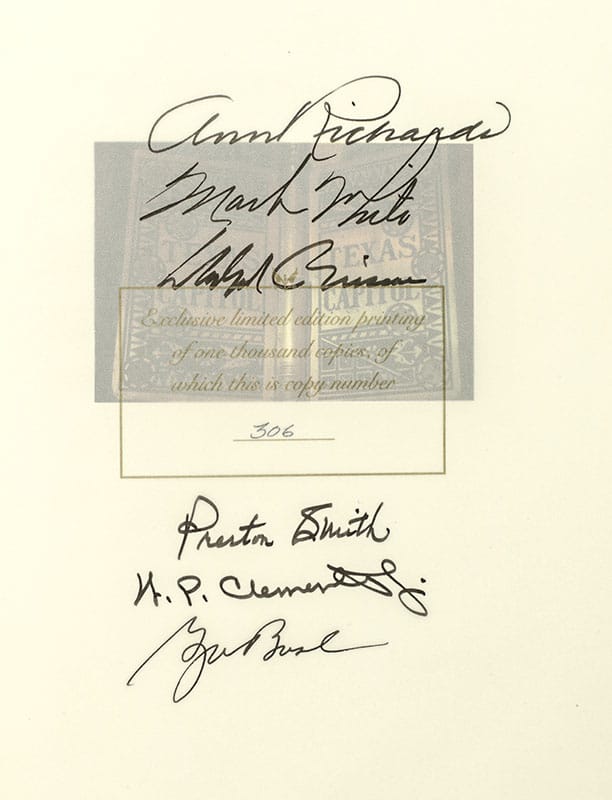 Ann Richards
Mark White
Dolph Briscoe
TEXAS TEXAS
CAPITOL CAPITOL
Exclusive limited edition printing
of one thousand copies, of
which this is copy number
306
Preston Smith
W. P. Clements Jr.
GW Bush